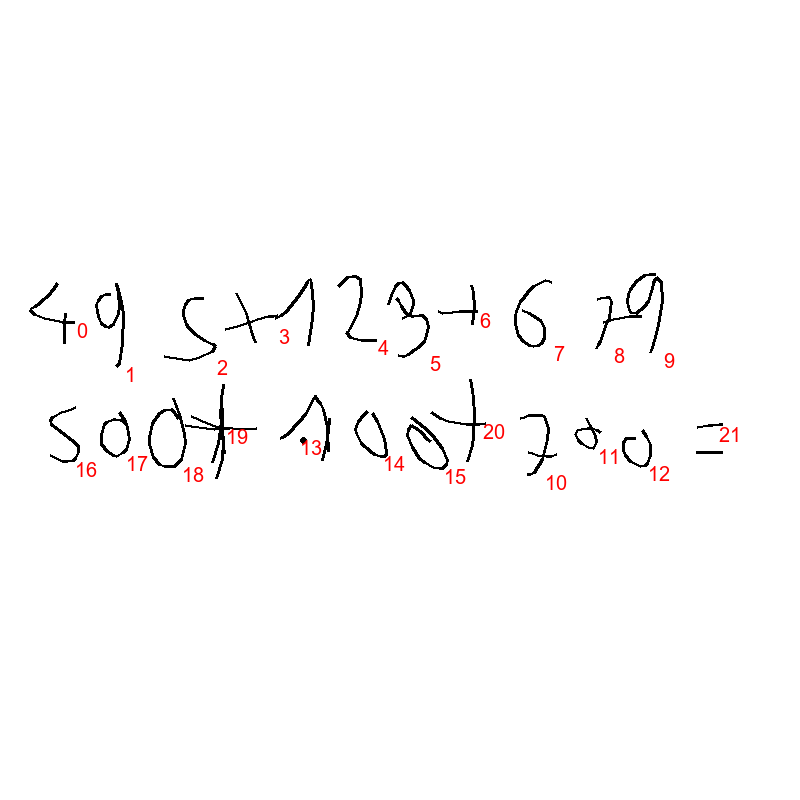 495+123+679
0 1 2 3 4 5 6 7 8 9
500+100+700=
16 17 18 19 13 14 15 20 10 11 12 21